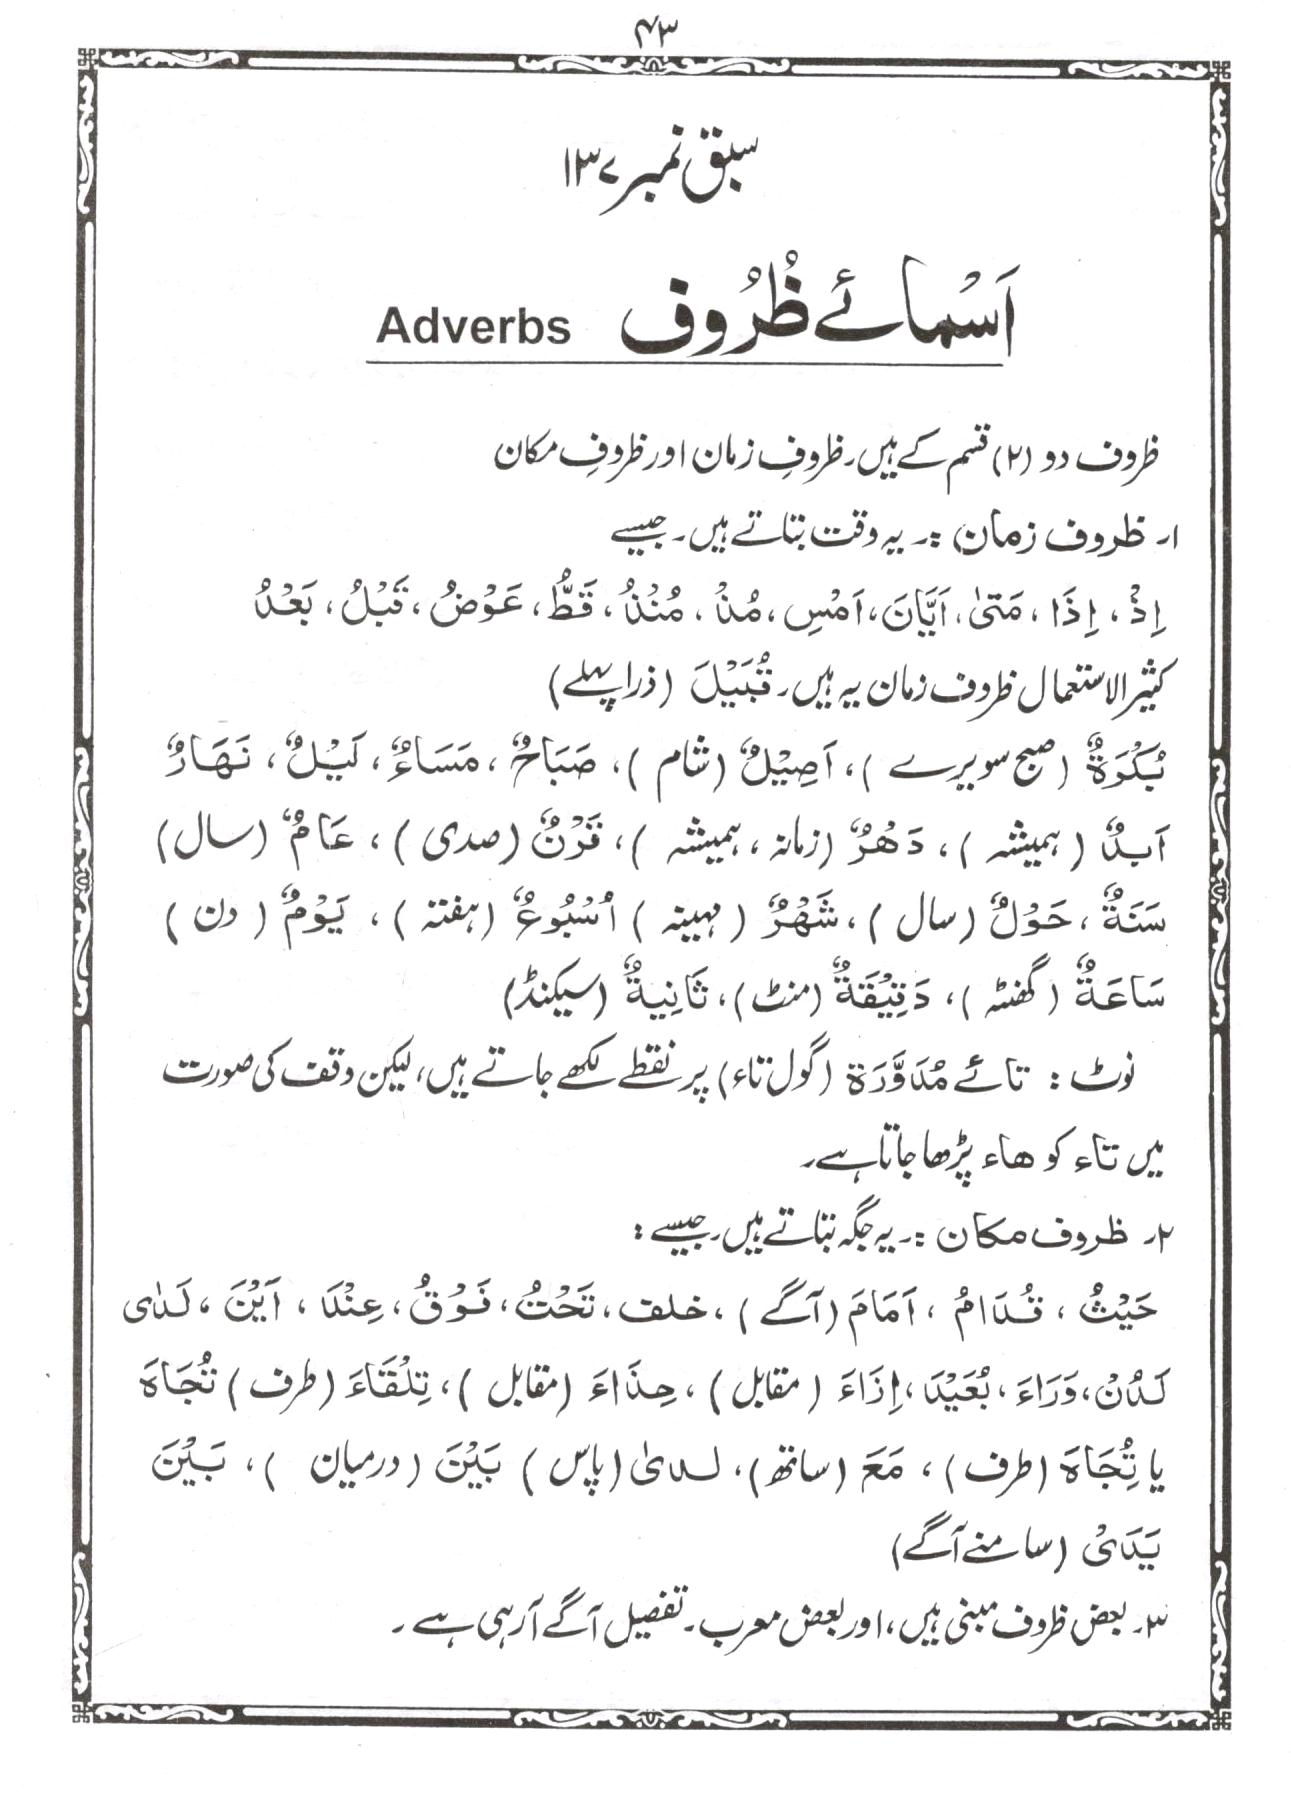 ۴۳
سبق نمبر ۱۳۷
اَسْمائے ظُرُوف Adverbs
ظروف دو (۲) قسم کے ہیں۔ ظروفِ زمان اور ظروفِ مکان
۱۔ ظروف زمان :۔ یہ وقت بتاتے ہیں۔ جیسے
اِذْ، اِذَا، مَتیٰ، اَیَّانَ، اَمْسِ، مُذْ، مُنْذُ، قَطُّ، عَوْضُ، قَبْلُ، بَعْدُ
کثیر الاستعمال ظروف زمان یہ ہیں۔ قُبَیْلَ (ذرا پہلے)
بُکْرَةٌ (صبح سویرے)، اَصِیْلٌ (شام)، صَبَاحٌ، مَسَاءٌ، لَیْلٌ، نَهَارٌ
اَبدٌ (ہمیشہ)، دَهْرٌ (زمانہ، ہمیشہ)، قَرْنٌ (صدی)، عَامٌ (سال)
سَنَةٌ، حَوْلٌ (سال)، شَهْرٌ (مہینہ) اُسْبُوعٌ (ہفتہ)، یَوْمٌ (دن)
سَاعَةٌ (گھنٹہ)، دَقِیْقَةٌ (منٹ)، ثَانِیةٌ (سیکنڈ)
نوٹ : تائے مُدَوَّرَة (گول تاء) پر نقطے لکھے جاتے ہیں، لیکن وقف کی صورت
میں تاء کو ھاء پڑھا جاتا ہے۔
۲۔ ظروف مکان :۔ یہ جگہ بتاتے ہیں۔ جیسے :
حَیْثُ، قُدَامُ، اَمَامَ (آگے)، خلف، تَحْتُ، فَوْقُ، عِنْدَ، اَیْنَ، لَدٰی
لَدُنْ، وَرَاءَ، بُعَیْدَ، اِزَاءَ (مقابل)، حِذَاءَ (مقابل)، تِلْقَاءَ (طرف) تُجَاهَ
یا تِجَاهَ (طرف)، مَعَ (ساتھ)، لدیٰ (پاس) بَیْنَ (درمیان)، بَیْنَ
یَدَیْ (سامنے آگے)
۳۔ بعض ظروف مبنی ہیں، اور بعض معرب۔ تفصیل آگے آرہی ہے۔